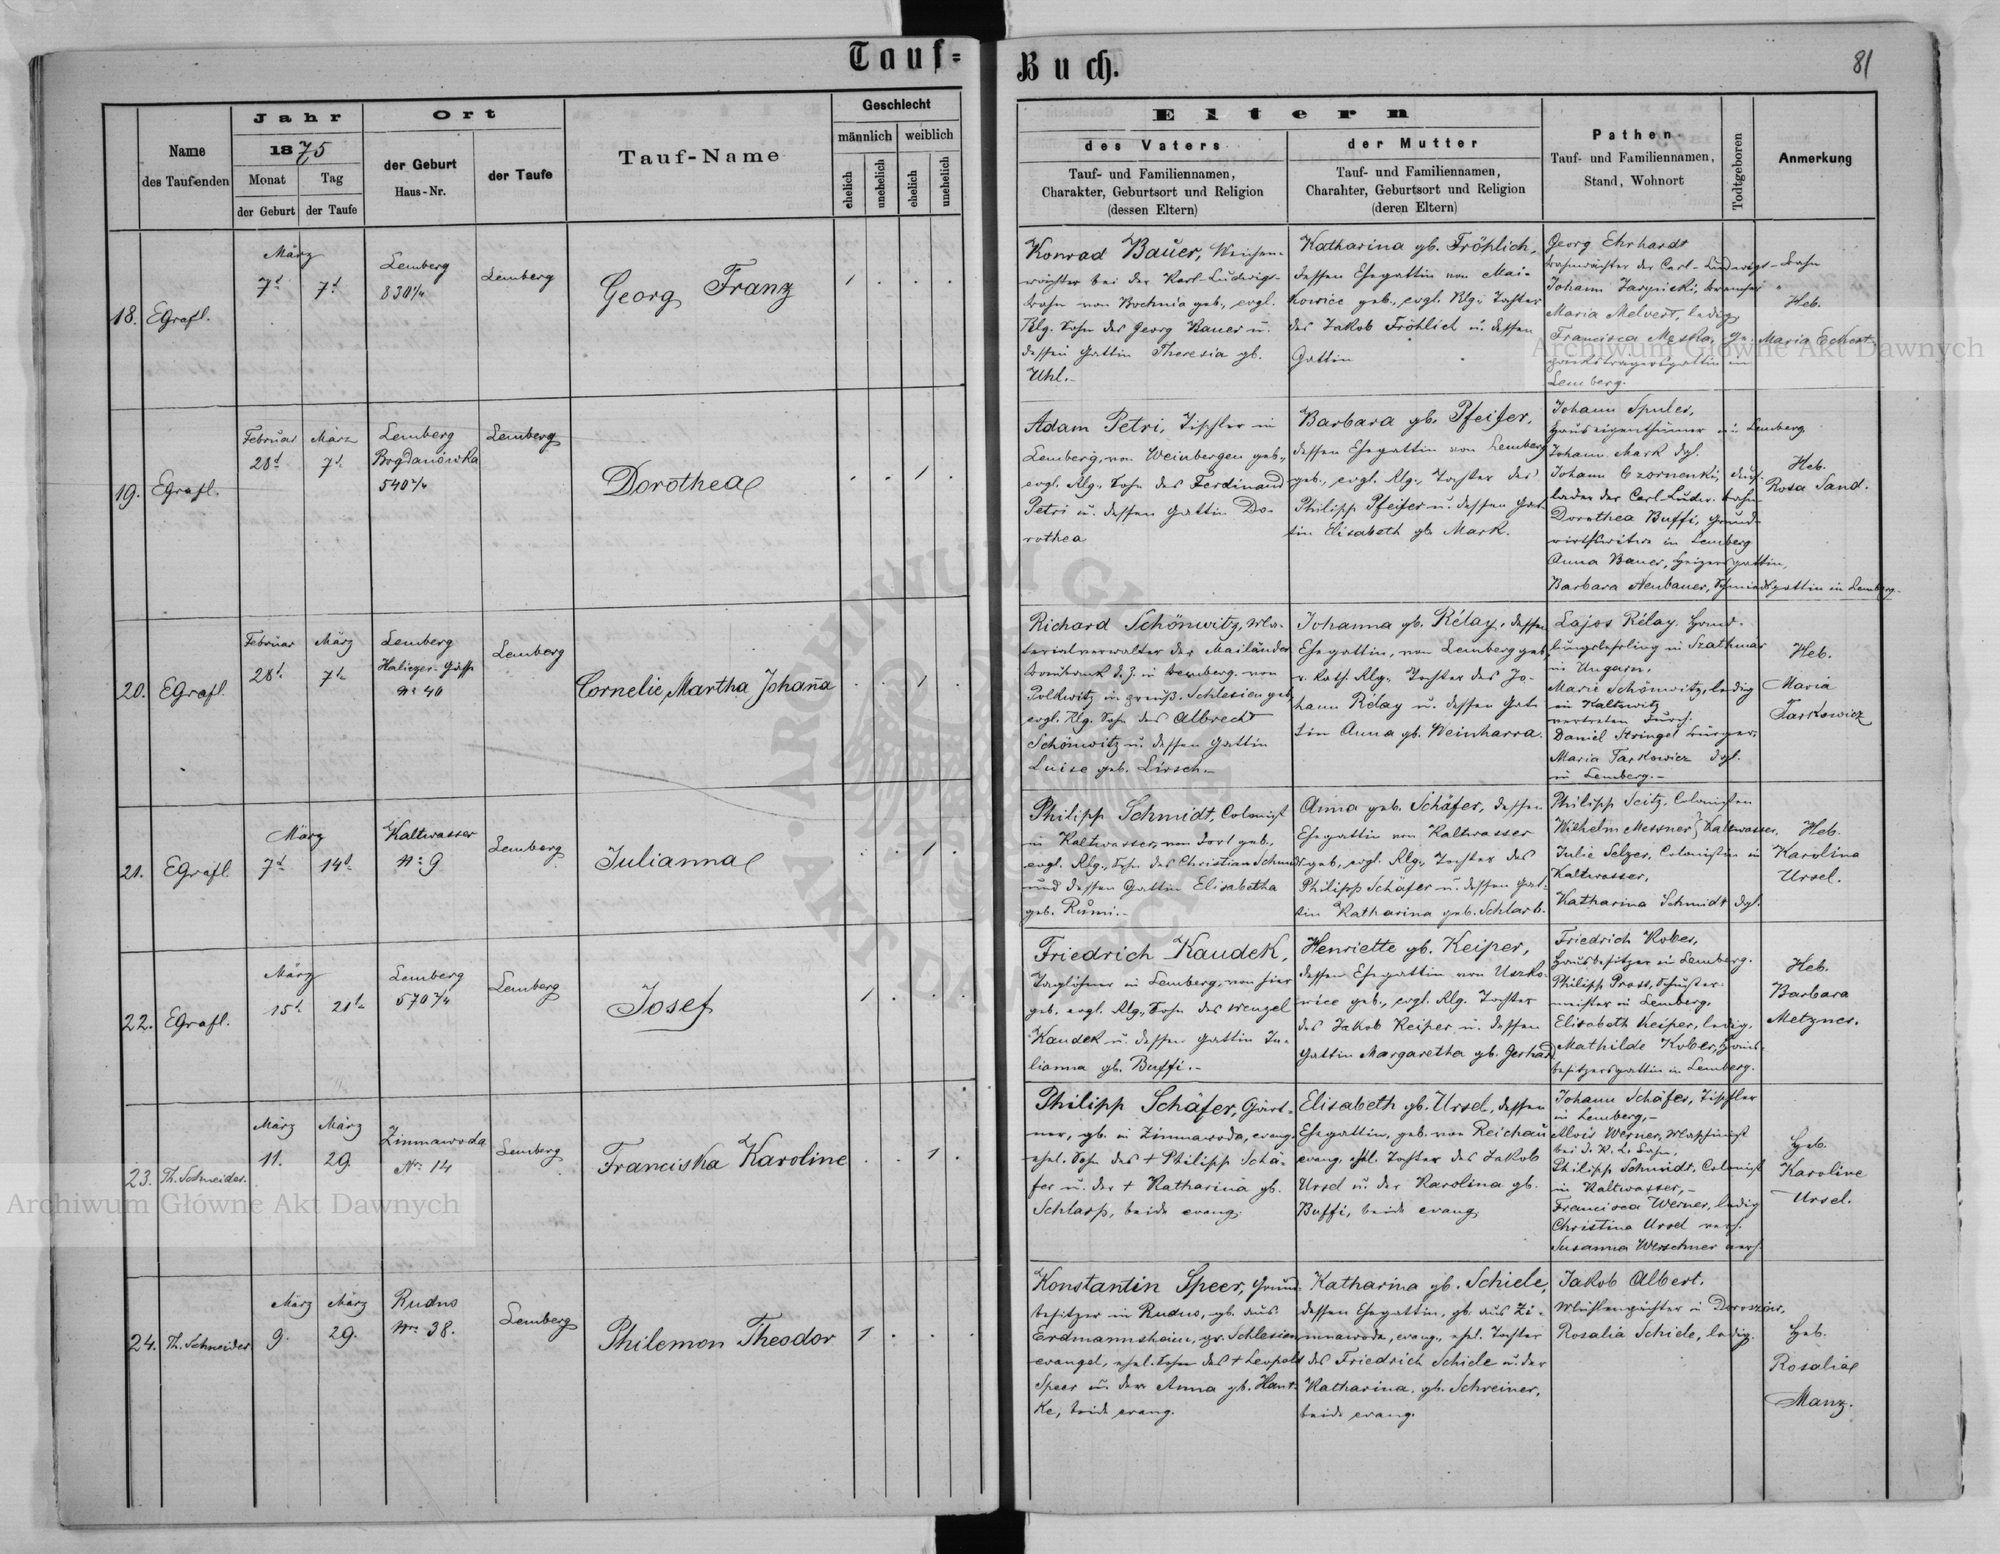 Tauf-
Buch.
81
Name
des Taufenden
Jahr
1875
Monat
Tag
der Geburt
der Taufe
Ort
der Geburt
Haus-Nr.
der Taufe
Tauf-Name
Geschlecht
männlich
weiblich
ehelich
unehelich
ehelich
unehelich
Eltern
des Vaters
Tauf- und Familiennamen,
Charakter, Geburtsort und Religion
(dessen Eltern)
der Mutter
Tauf- und Familiennamen,
Charahter, Geburtsort und Religion
(deren Eltern)
Pathen
Tauf- und Familiennamen,
Stand, Wohnort
Todtgeboren
Anmerkung
18.
EGrafl.
März
7t
7t
Lemberg
830 1/4
Lemberg
Georg Franz
1
Konrad Bauer, Weichen-
wächter bei der Karl-Ludwigs-
bahn von Bochnia geb., evgl.
Rlg. Sohn des Georg Bauer u.
dessen Gattin Theresia gb.
Uhl.-
Katharina gb. Fröhlich,
dessen Ehegattin von Mai-
kowice geb., evgl. Rlg., Tochter
des Jakob Fröhlich u. dessen
Gattin
Georg Ehrhardt
bahnwächter der Carl-Ludwigs-bahn
Maria Melvert, ledig
Lemberg.
Heb.
Maria Eckert.
19.
EGrafl.
Februar
28t
März
7t
Lemberg
Bogdanówka
540 4/4
Lemberg
Dorothea
1
Adam Petri, Tischler in
Lemberg, von Weinbergen geb.,
evgl. Rlg. Sohn des Ferdinand
Petri u. dessen Gattin Do-
rothea
Barbara gb. Pfeifer,
dessen Ehegattin von Lemberg
geb., evgl. Rlg., Tochter des
Philipp Pfeifer u. dessen Gat-
tin Elisabeth gb. Mark.
Johann Spuler,
Hauseigenthümer in Lemberg
Johann Mark dgl.
lader der Carl-Ludw. bahn
Dorothea Buffi, Grund-
wirthswitwe in Lemberg
Anna Bauer, Heizersgattin,
Barbara Neubauer, Schmiedsgattin in Lemberg.
Heb.
Rosa Sand.
20.
EGrafl.
Februar
28t
März
7t
Lemberg
Haliczer-Gasse
No 40
Lemberg
Cornelie, Martha, Johanna
1
Richard Schönwitz, Ma-
terialverwalter der Mailänder
in Lemberg, von
Polkwitz in preuß. Schlesien geb.
evgl. Rlg. Sohn des Albrecht
Schönwitz u. dessen Gattin
Luise geb. Lirsch.-
Johanna gb. Rélay, dessen
Ehegattin, von Lemberg geb.
r. kath. Rlg. Tochter des Jo-
hann Rélay u. dessen Gat-
tin Anna gb. Weinharra.
Lajos Rélay. Hand-
lungslehrling in Szathmar
in Ungarn,
Marie Schönwitz, ledig
in Kaltwitz
vertreten durch:
Daniel Stringel bürger,
Maria Tarkowicz dgl.
in Lemberg.-
Heb.
Maria
Tarkowicz
21.
EGrafl
März
7t
14t
Kaltwasser
No 9
Lemberg
Julianna
1
Philipp Schmidt, Colonist
in Kaltwasser, von dort geb.,
evgl. Rlg. Sohn des Christian Schmidt
und dessen Gattin Elisabetha
geb. Rumi.-
Anna geb. Schäfer, dessen
Ehegattin von Kaltwasser
geb., evgl. Rlg., Tochter des
Philipp Schäfer u. dessen Gat-
tin Katharina geb. Schlarb.
Philipp Seitz, Colonisten
Wilhelm Messner } Kaltwasser,
Julie Selzer, Colonistin in
Kaltwasser,
Katharina Schmidt dgl.
Heb.
Karolina
Ursel.
22.
EGrafl.
März
15t
21t
Lemberg
570 2/4
Lemberg
Josef
1
Friedrich Kaudek,
Taglöhner in Lemberg, von hier
geb. evgl. Rlg., Sohn des Wenzel
Kaudek u. dessen Gattin Ju-
lianna gb. Buffi.-
Henriette gb. Keiper,
dessen Ehegattin von Uszko-
wice geb., evgl. Rlg. Tochter
des Jakob Keiper u. dessen
Gattin Margaretha gb. Gerhard
Friedrich Kober,
Hausbesitzer in Lemberg.
Philipp Prass, Schuster-
meister in Lemberg,
Elisabeth Keiper, ledig,
Mathilde Kober, Haus-
besitzersgattin in Lemberg.
Heb.
Barbara
Metzner.
23.
Th. Schneider.
März
11.
März
29.
Zimnawoda
Nr. 14
Lemberg
Franciska Karoline
1
Philipp Schäfer, Gärt-
ner, gb. in Zimnawoda, evang.
ehel. Sohn des + Philipp Schä-
fer u. der + Katharina gb.
Schlarp, beide evang.
Elisabeth gb. Ursel, dessen
Ehegattin, geb. von Reichau
evang. ehel. Tochter des Jakob
Ursel u. der Karolina gb.
Buffi, beide evang.
Johann Schäfer, Tischler
in Lemberg,-
Alois Werner, Maschinist
Philipp Schmidt, Colonist
in Kaltwasser,-
Francisca Werner, ledig
Christina Ursel verh.
Susanna Werschner verh.
Heb.
Karoline
Ursel.
24.
Th. Schneider
März
9.
März
29.
Rudno
Nro 38.
Lemberg
Philemon Theodor
1
Konstantin Speer, Grund-
besitzer in Rudno, gb. aus
Erdmannsheim, pr. Schlesien
evangel., ehel. Sohn des + Leopold
Speer u. der Anna gb. Hant-
ke, beide evang.
Katharina gb. Schiele,
dessen Ehegattin, gb. aus Zi-
mnawoda, evang., ehel. Tochter
des Friedrich Schiele u. der
Katharina, gb. Schreiner,
beide evang.
Jakob Albert,
Mühlenpächter in Doroszów,
Rosalia Schiele, ledig.
Heb.
Rosalia
Manz.
Archiwum Główne Akt Dawnych
Archiwum Główne Akt Dawnych